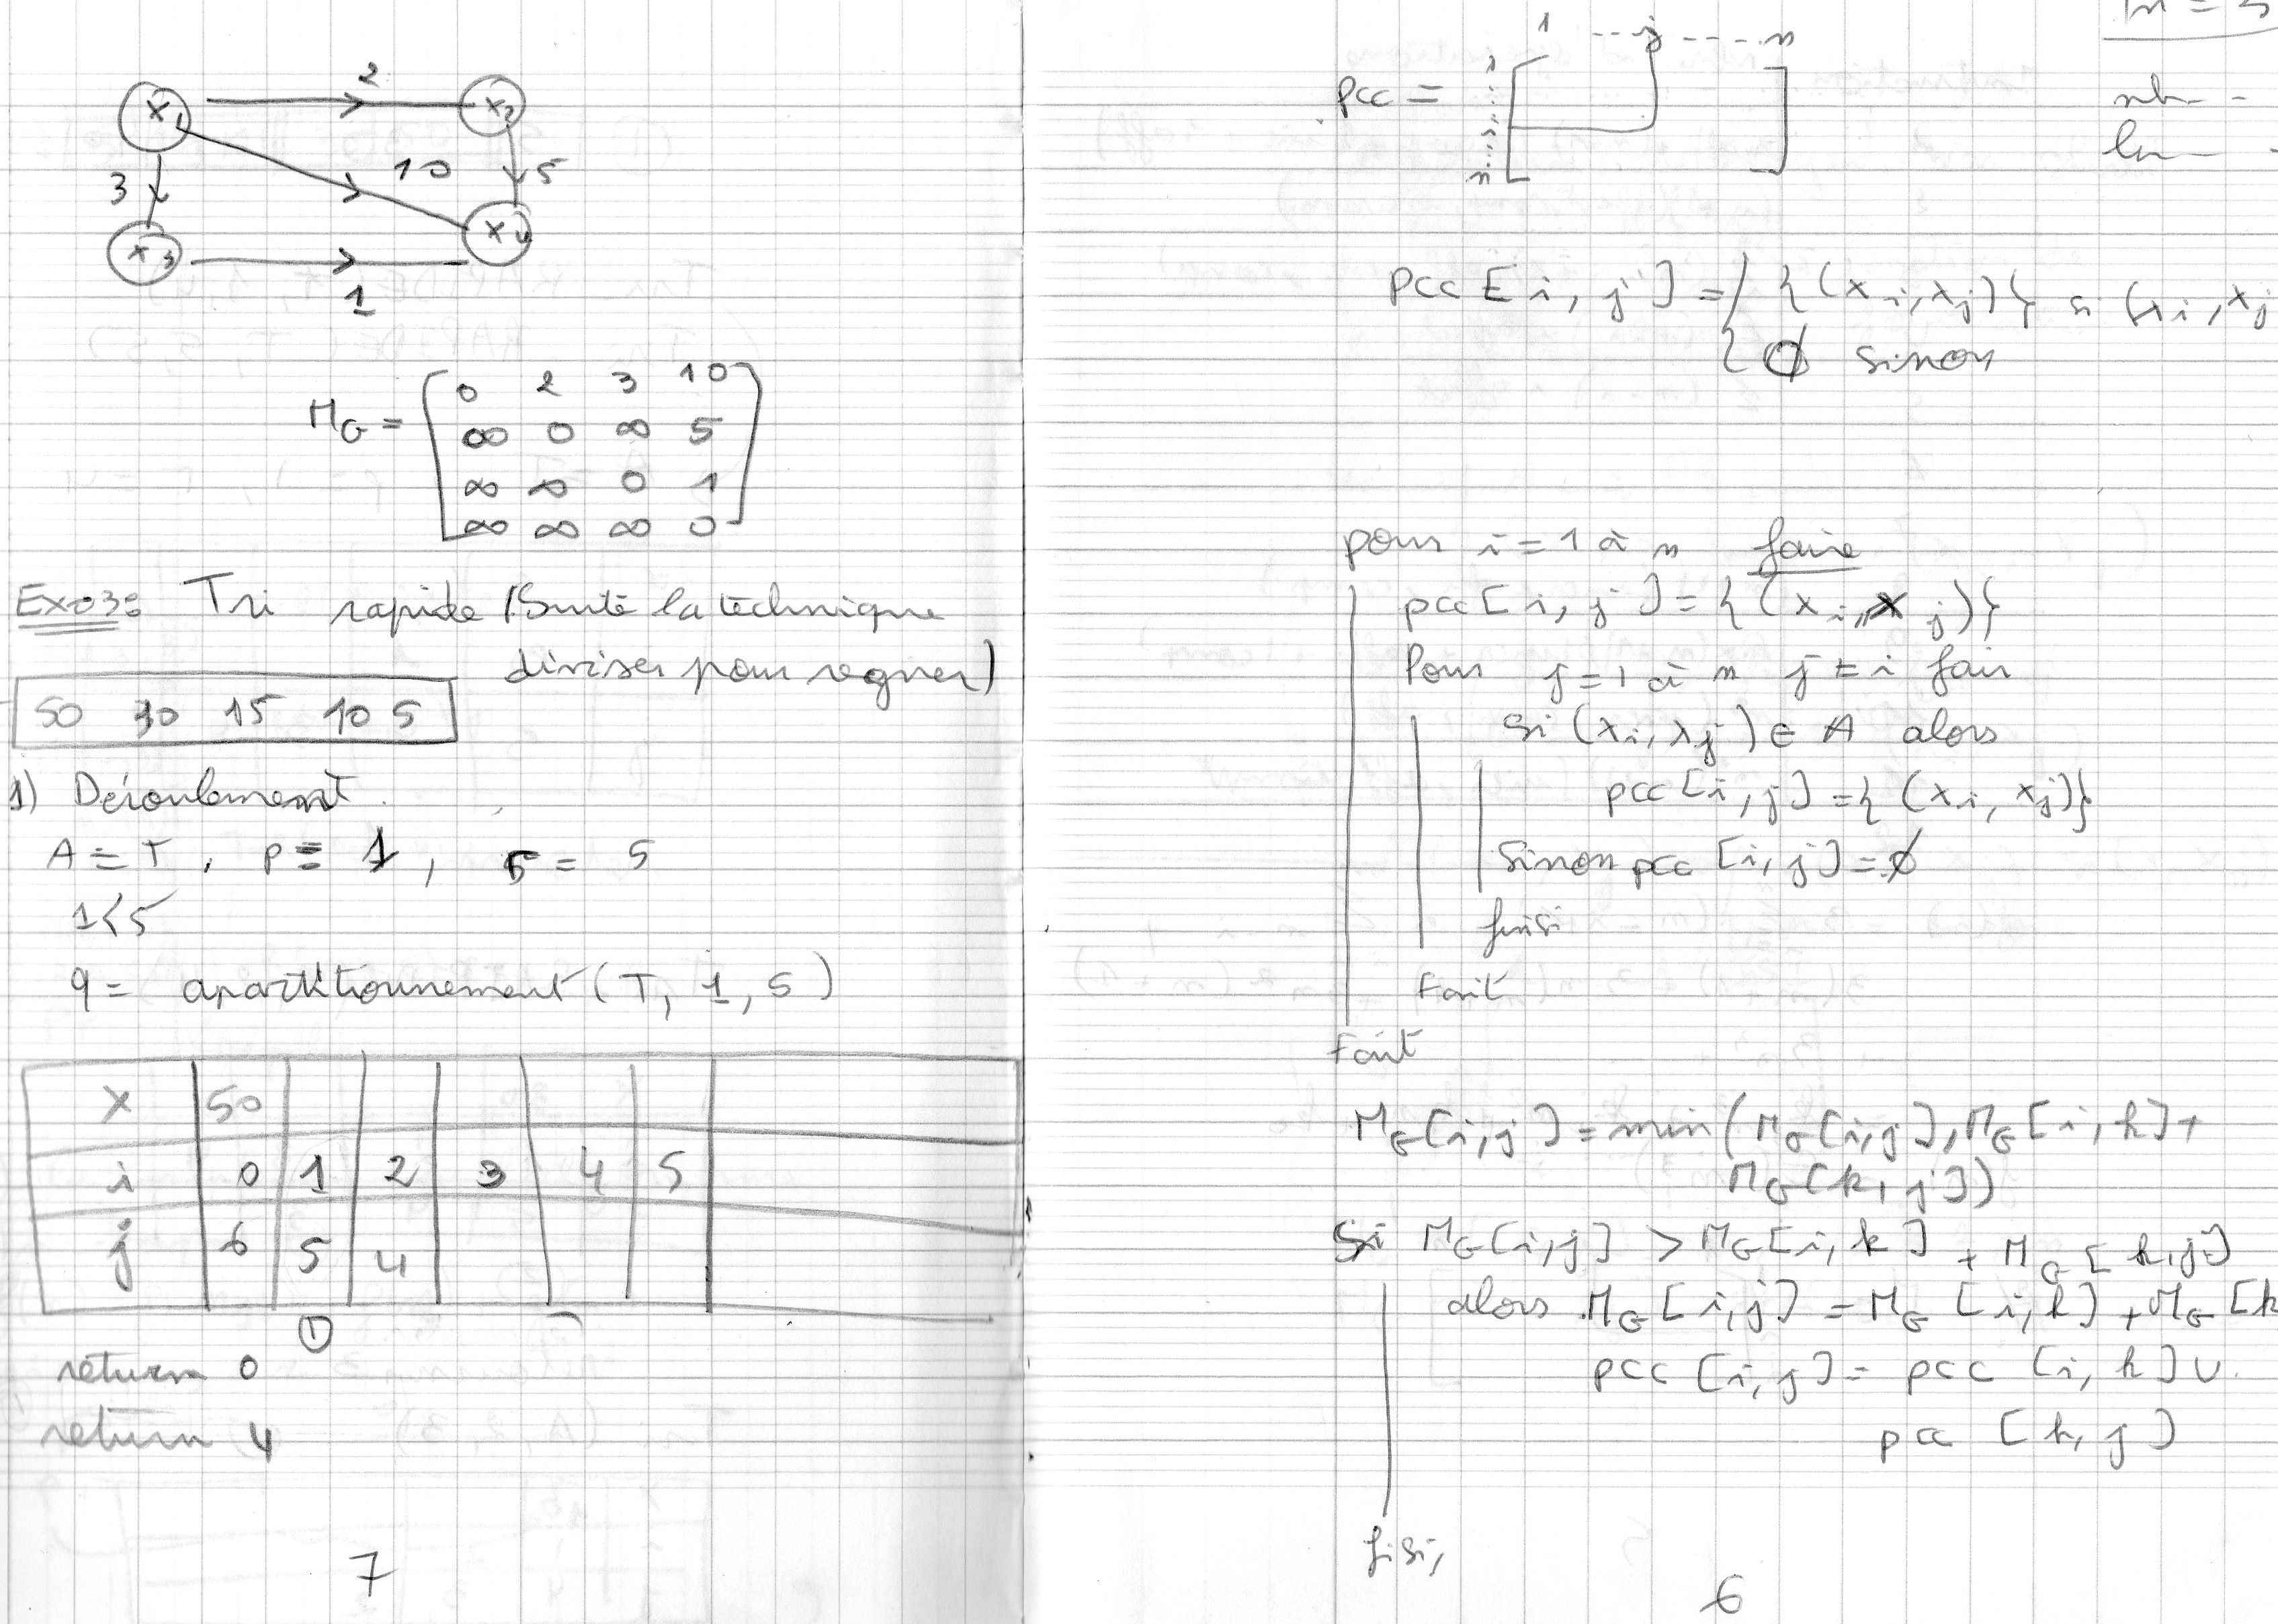 x1 2 x2
10
3 5
x3 x4
1
MG = [ 0 2 3 10
∞ 0 ∞ 5
∞ ∞ 0 1
∞ ∞ ∞ 0 ]
Exo3: Tri rapide (Suite la technique
diviser pour regner)
50 30 15 10 5
1) Déroulement.
A = T, p = 1, r = 5
1<5
q = apartitionnement (T, 1, 5)
X 50
i 0 1 2 3 4 5
j 6 5 4
①
return 0
return 4
7
1 ---j----n
pcc =
n
pcc [i, j] = { {(xi, xj)} si (xi, xj
{ ∅ sinon
pour i = 1 à n faire
pcc [i, j] = {(xi, xj)}
Pour j = 1 à n j ≠ i fair
Si (xi, xj) ∈ A alors
pcc [i, j] = {(xi, xj)}
Sinon pcc [i, j] = ∅
finsi
Fait
Fait
MG[i,j] = min(MG[i,j], MG[i,k] +
MG[k,j])
Si MG[i,j] > MG[i,k] + MG[k,j]
alors MG[i,j] = MG[i,k] + MG[k
pcc [i, j] = pcc [i, k] ∪
pcc [k, j]
fisi,
6